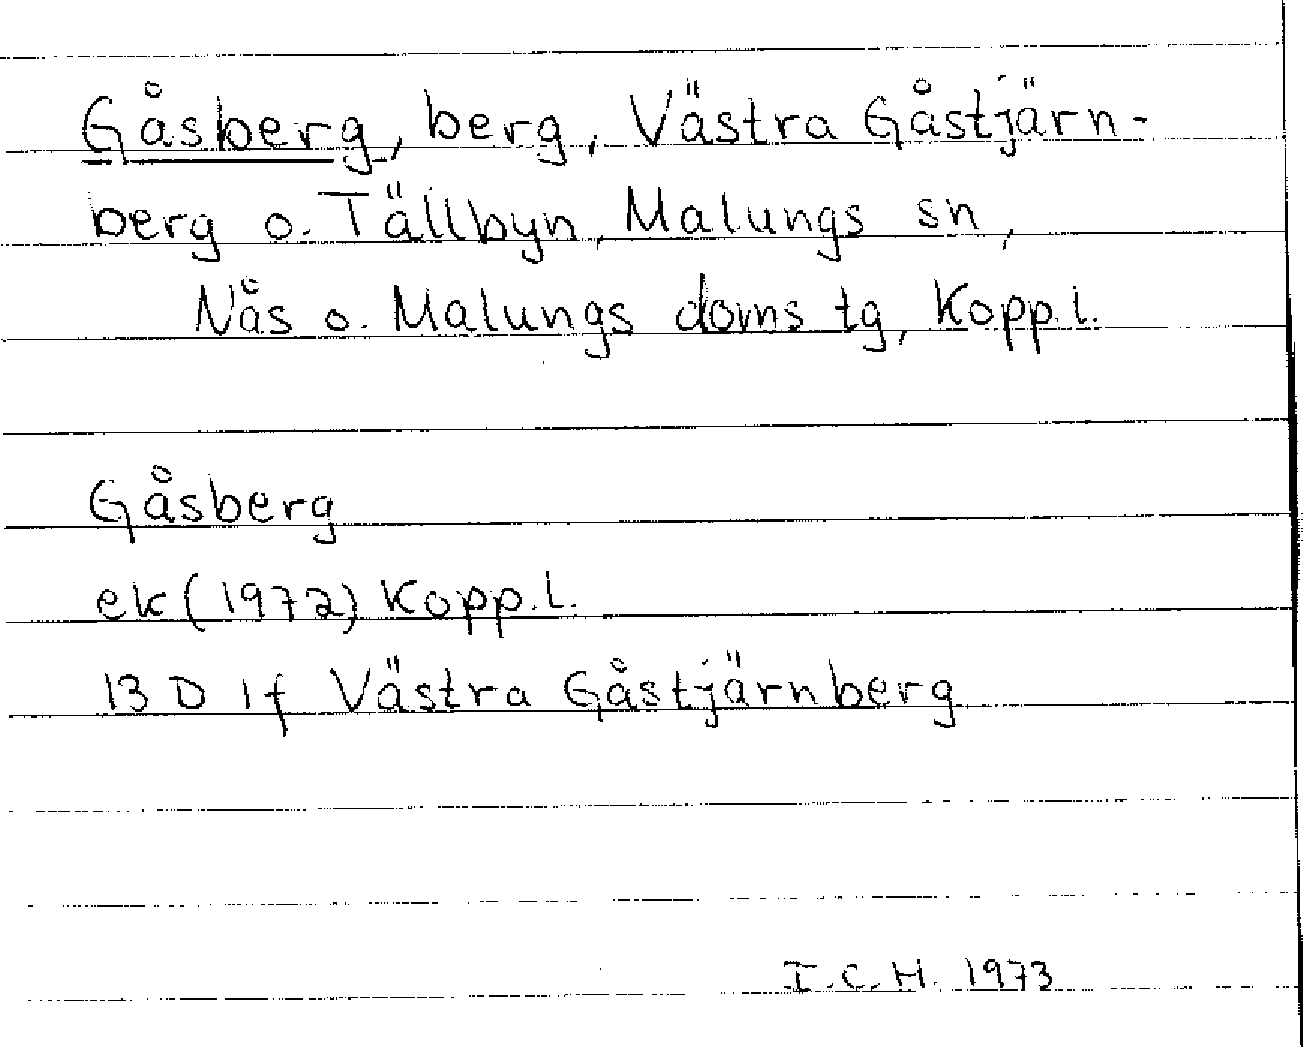 Gåsberg, berg, Västra Gåstjärn-
berg o. Tällbyn, Malungs sn,
Nås o. Malungs doms tg, Kopp. l.
Gåsberg
ek (1972) Kopp. l.
13 D 1f Västra Gåstjärnberg
I.C.H. 1973